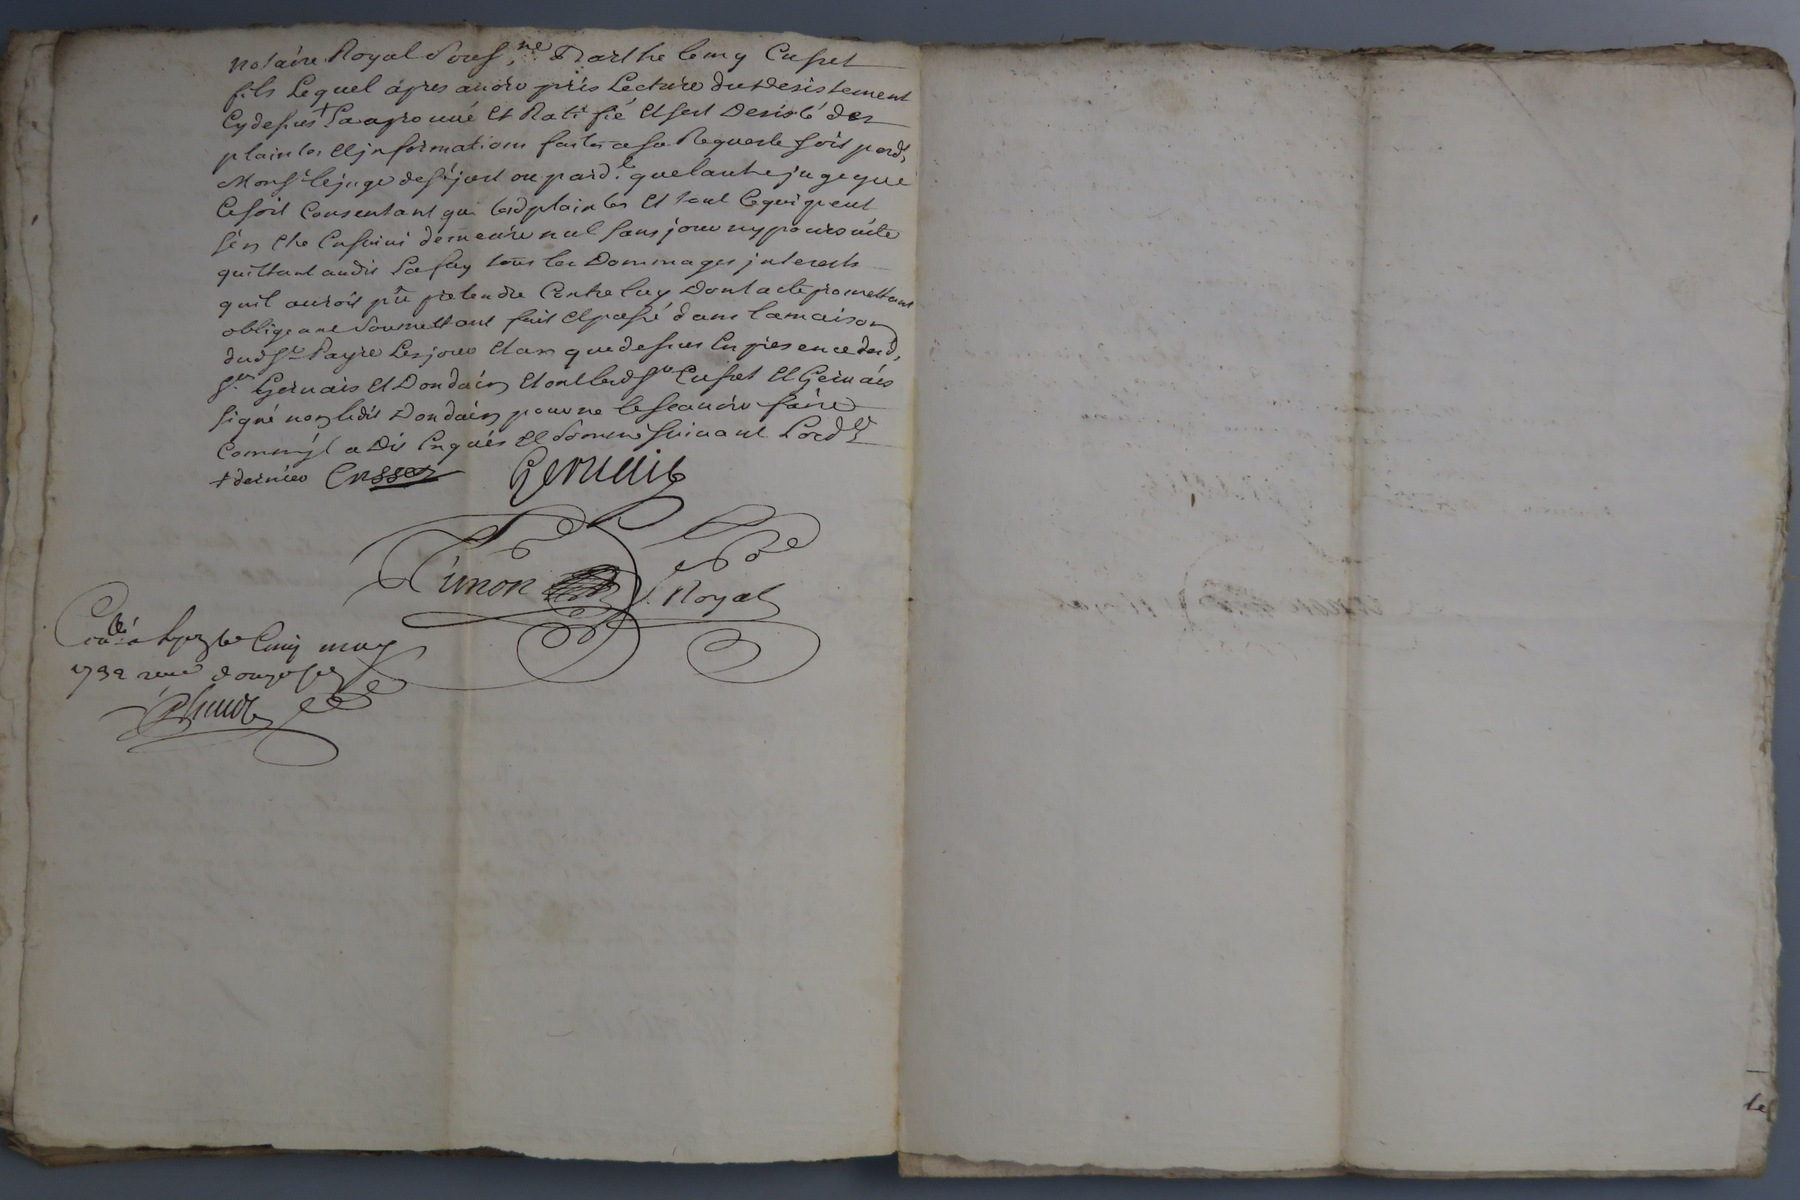 notaire Royal sousg.ne Barthelemy Cusset
fils Lequel apres avoir pris Lecture du desistement
Cydessus + La aprouvé et Ratifié et sest Desisté des
plaintes et jnformations faites a sa Requeste soit pard.
Monsr. le juge de ou pard. quelautre juge que
Ce soit Consentant que lesd plaintes et tout Ce qui peut
sen Estre Ensuivi demeure nul sans jour ny poursuite
quittant audit Lafay tous les Dommages jnterests
quil auroit pû pretendre Contre luy Dont acte promettant
obligeant soumettant fait et passé dans la maison
dud sr. Payre Les jour et an que dessus En presence desd.
srs. Gervais et Dondain et ont lesd srs Cusset et Gervais
signé non ledit Dondain pour ne le scavoir faire
Comm jl a Dit Enquis et sommé suivant Lord.ce
+ dernier Cusset Gervais
Simon Royal
Con.lé a le Cinq may
1732 receu douze sols
le